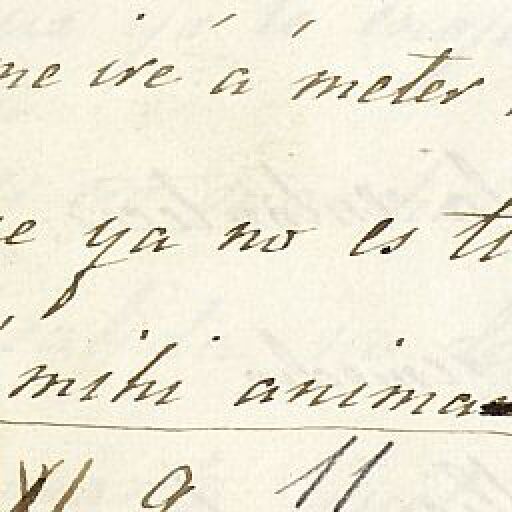 me iré á meter
ya no es
mihi anima
XI a 11